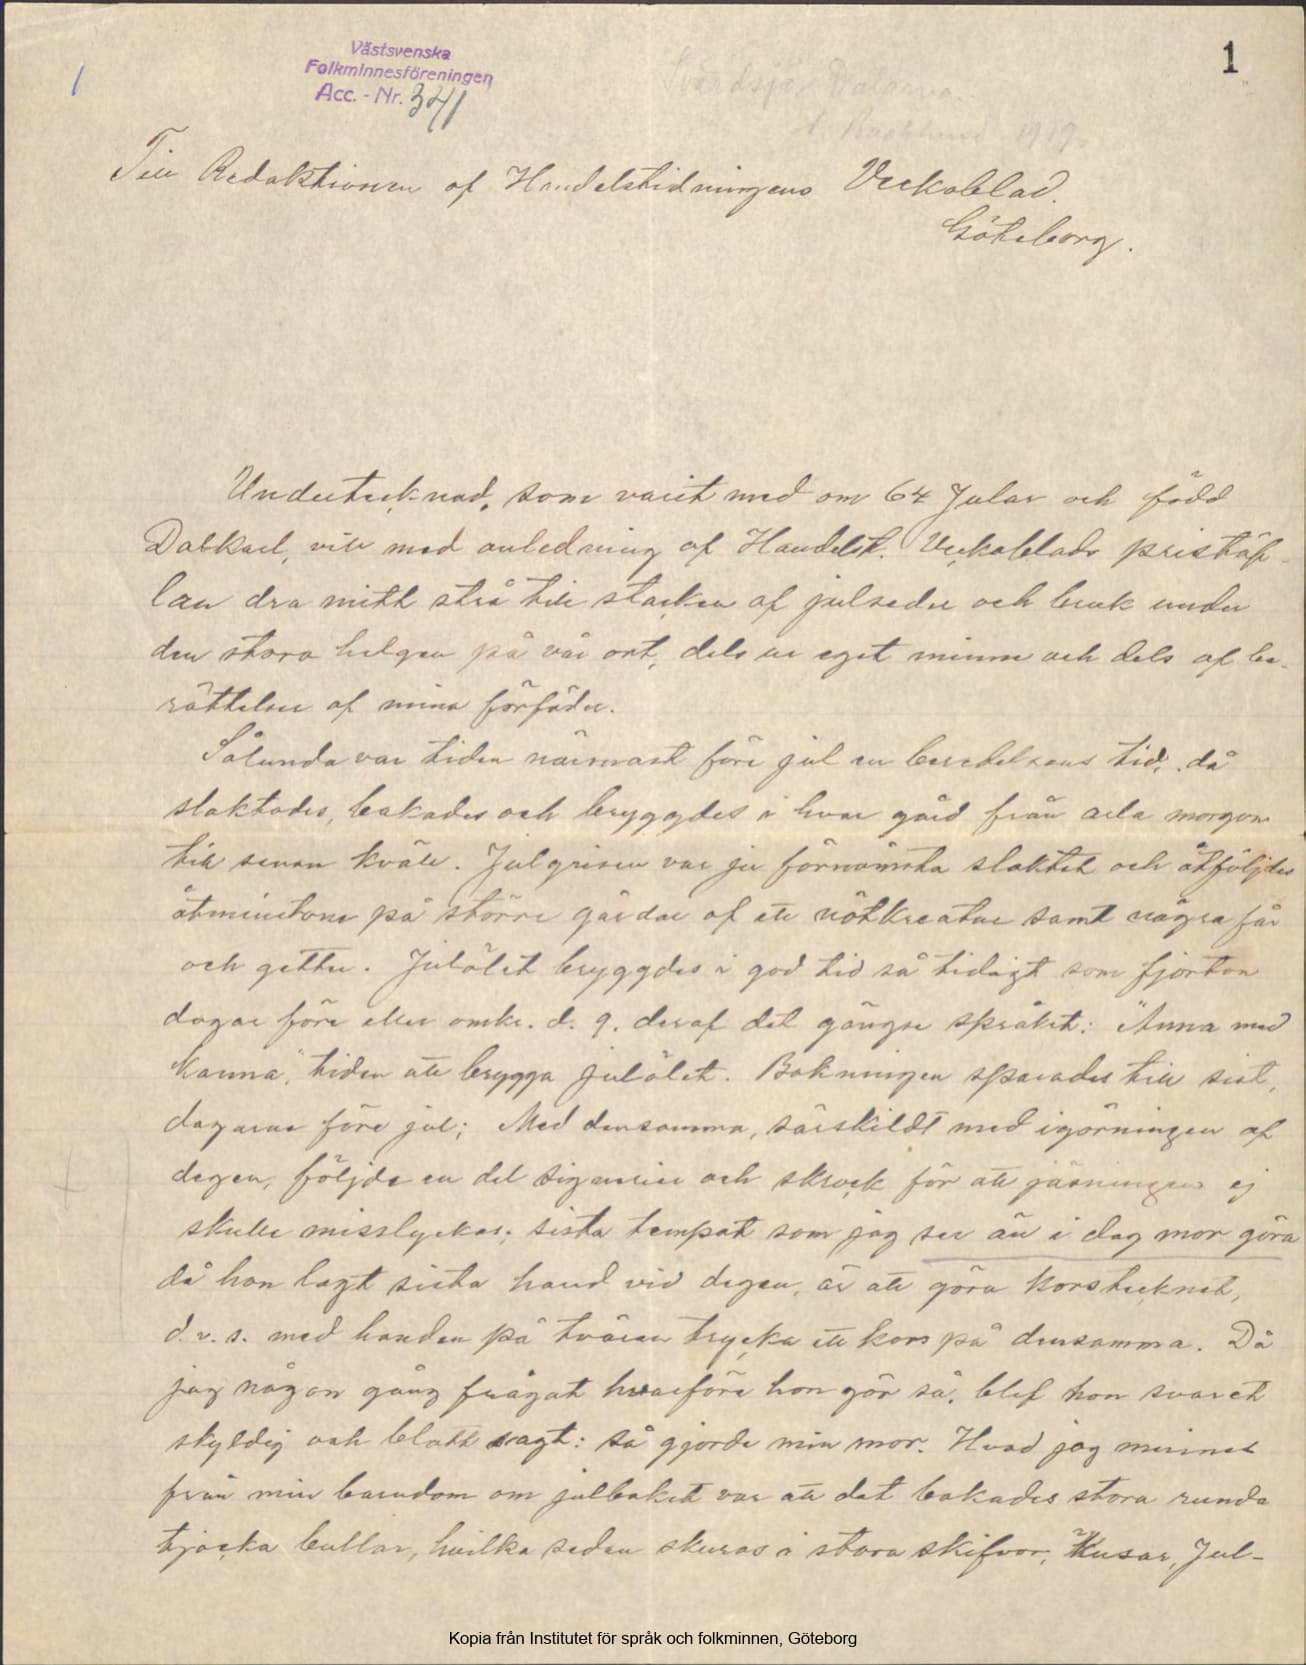 1
Västsvenska
Folkminnesföreningen
Acc. - Nr. 341
1
Svärdsjö, Dalarna.
1919.
Till Redaktionen af Handelstidningens Veckoblad.
Göteborg.
Undertecknad, som varit med om 64 Jular och född
Dalkarl, vill med anledning af Handelst. Veckoblads pristäf-
lan dra mitt strå till stacken af julseder och bruk under
den stora helgen på vår ort, dels ur eget minne och dels af be-
rättelser af mina förfäder.
Sålunda var tiden närmast före jul en beredelsens tid, då
slaktades, bakades och bryggdes i hvar gård från arla morgon
till senan kväll. Julgrisen var ju förnämsta slaktet och åtföljdes
åtminstone på större gårdar af ett nötkreatur samt några får
och getter. Julölet bryggdes i god tid så tidigt som fjorton
dagar före eller omkr. d. 9. deraf det gängse språket: "Anna med
Kanna", tiden att brygga julölet. Bakningen sparades till sist,
dagarne före jul; Med densamma, särskildt med igörningen af
degen, följde en del signerier och skrock för att jäsningen ej
skulle misslyckas; sista tempot som jag ser än i dag mor göra
då hon lagt sista hand vid degen, är att göra korstecknet,
d.v.s. med handen på tvären trycka ett kors på densamma. Då
jag någon gång frågat hvarföre hon gör så, blef hon svaret
skyldig och blott sagt: så gjorde min mor. Hvad jag minnes
från min barndom om julbaket var att det bakades stora runda
tjocka bullar, hvilka sedan skuros i stora skifvor, Kusar, Jul-
Kopia från Institutet för språk och folkminnen, Göteborg